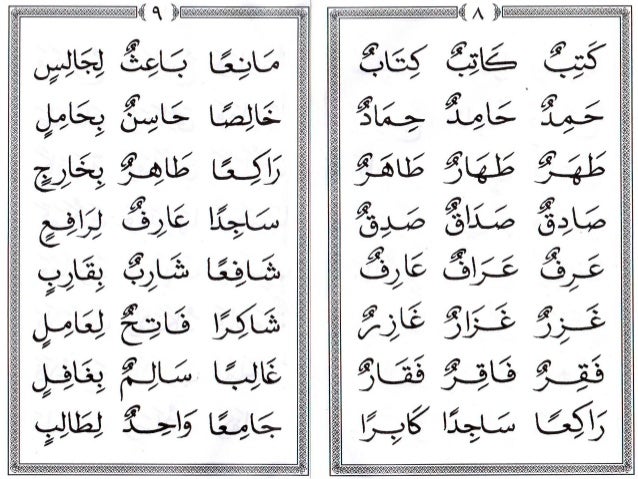 ٨
كَتِبٌ كَاتِبٌ كِتَابٌ
حَمِدٌ حَامِدٌ حِمَادٌ
طَهَرٌ طَهَارٌ طَاهَرٌ
صَادِقٌ صَدَاقٌ صَدِقٌ
عَرِفٌ عَرَافٌ عَارِفٌ
غَزِرٌ غَزَارٌ غَازِرٌ
فَقِرٌ فَاقِرٌ فَقَارٌ
رَاكِعًا سَاجِدًا كَابِرًا
٩
مَانِعًا بَاعِثٌ لِجَالِسٍ
خَالِصًا حَاسِنٌ بِحَامِلٍ
رَاكِعًا طَاهِرٌ بِخَارِجٍ
سَاجِدًا عَارِفٌ لِرَافِعٍ
شَافِعًا شَارِبٌ بِقَارِبٍ
شَاكِرًا فَاتِحٌ لِعَامِلٍ
غَالِبًا سَالِمٌ بِغَافِلٍ
جَامِعًا وَاحِدٌ لِطَالِبٍ